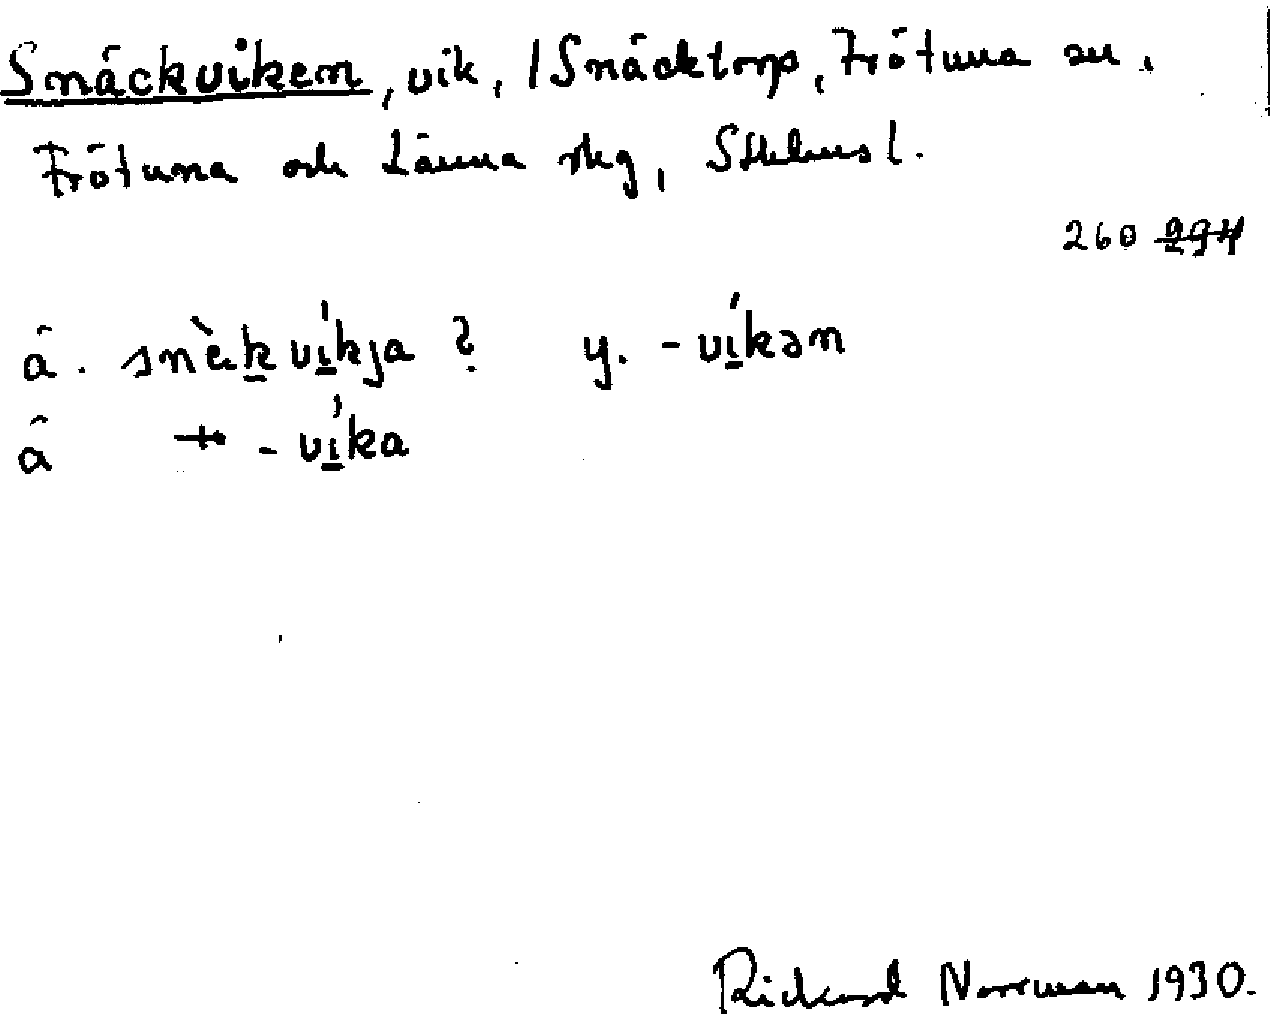 Snäckviken, vik, /Snäcktorp, Frötuna sn,
Frötuna och Länna skg, Sthlms l.
260 294
ä. snèkvíkja ? y. -víkən
ä -víka
Rickard Norrman 1930.